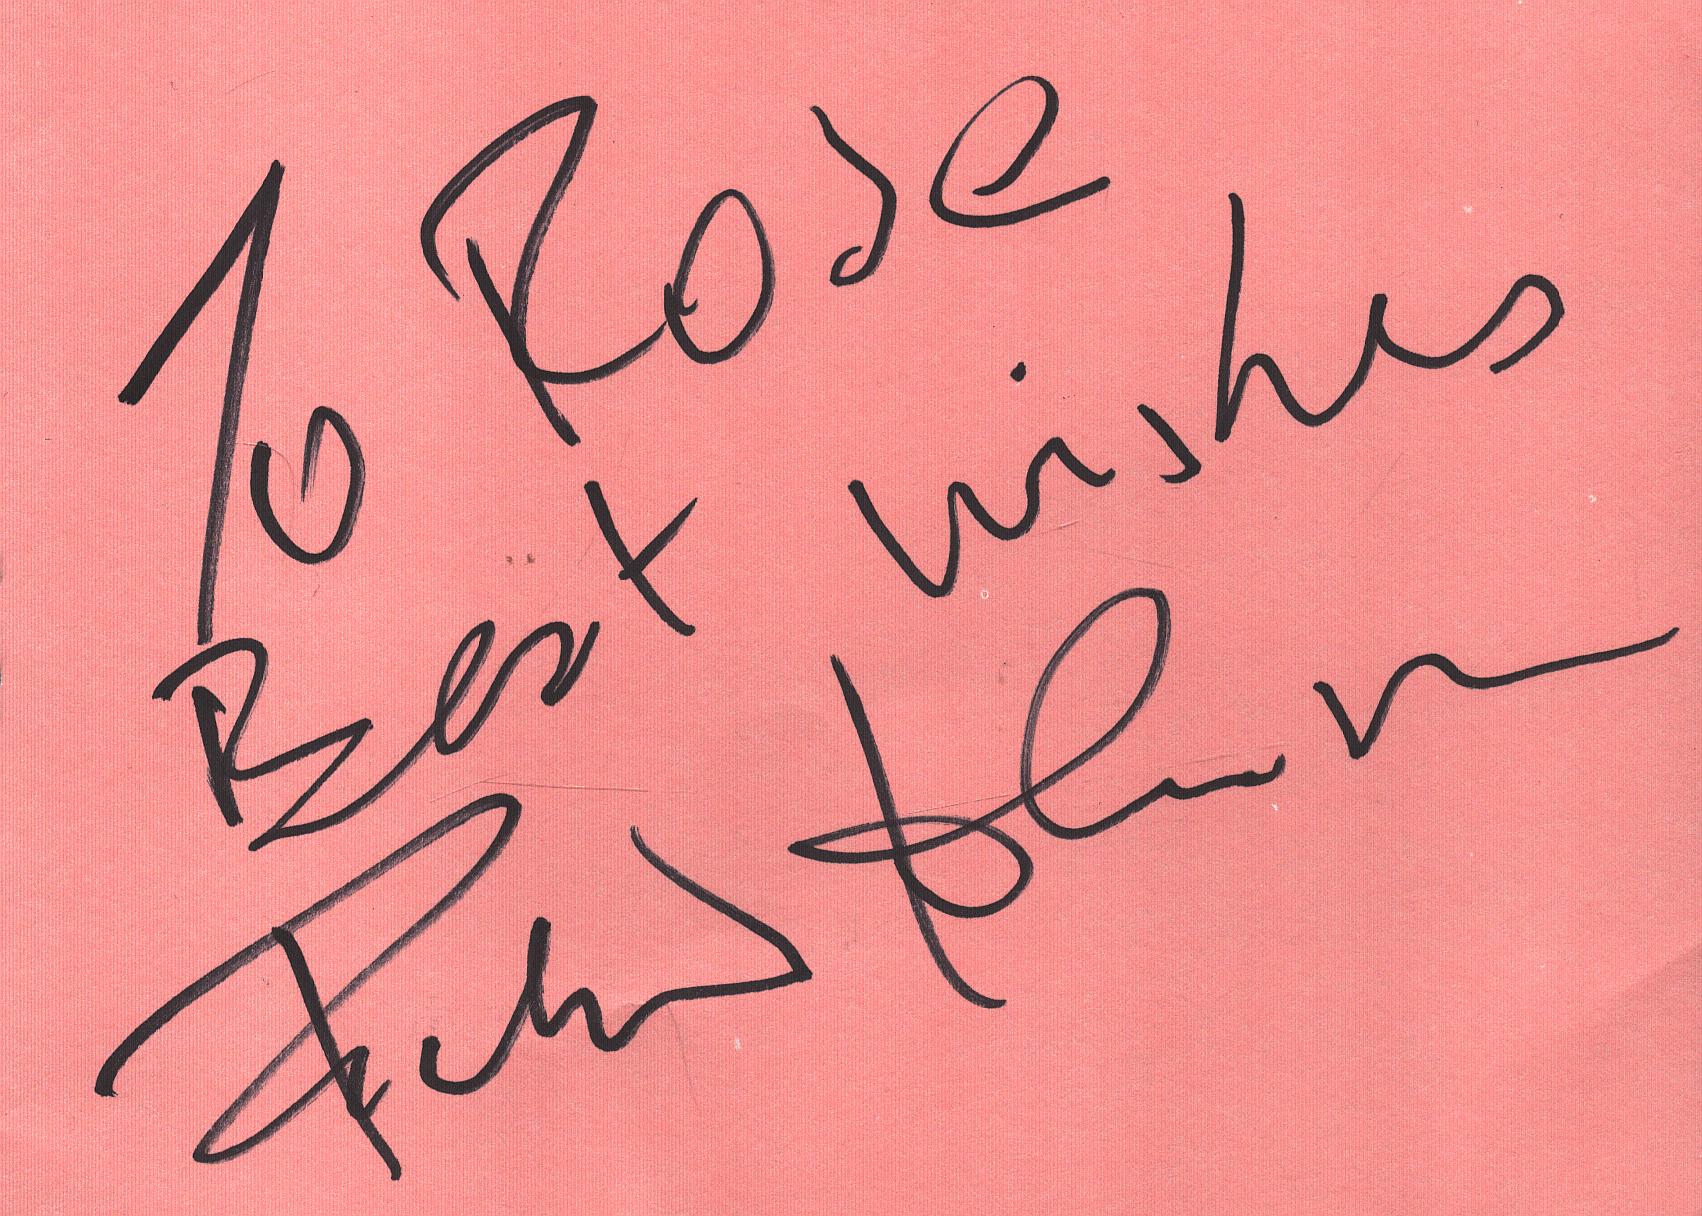 To Rose
Best wishes